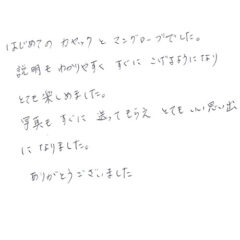 はじめての カヤック と マングローブでした。
説明も わかりやすく すぐに こげるようになり
とても楽しめました。
写真も すぐに 送ってもらえ とても いい思い出
に なりました。
ありがとうございました